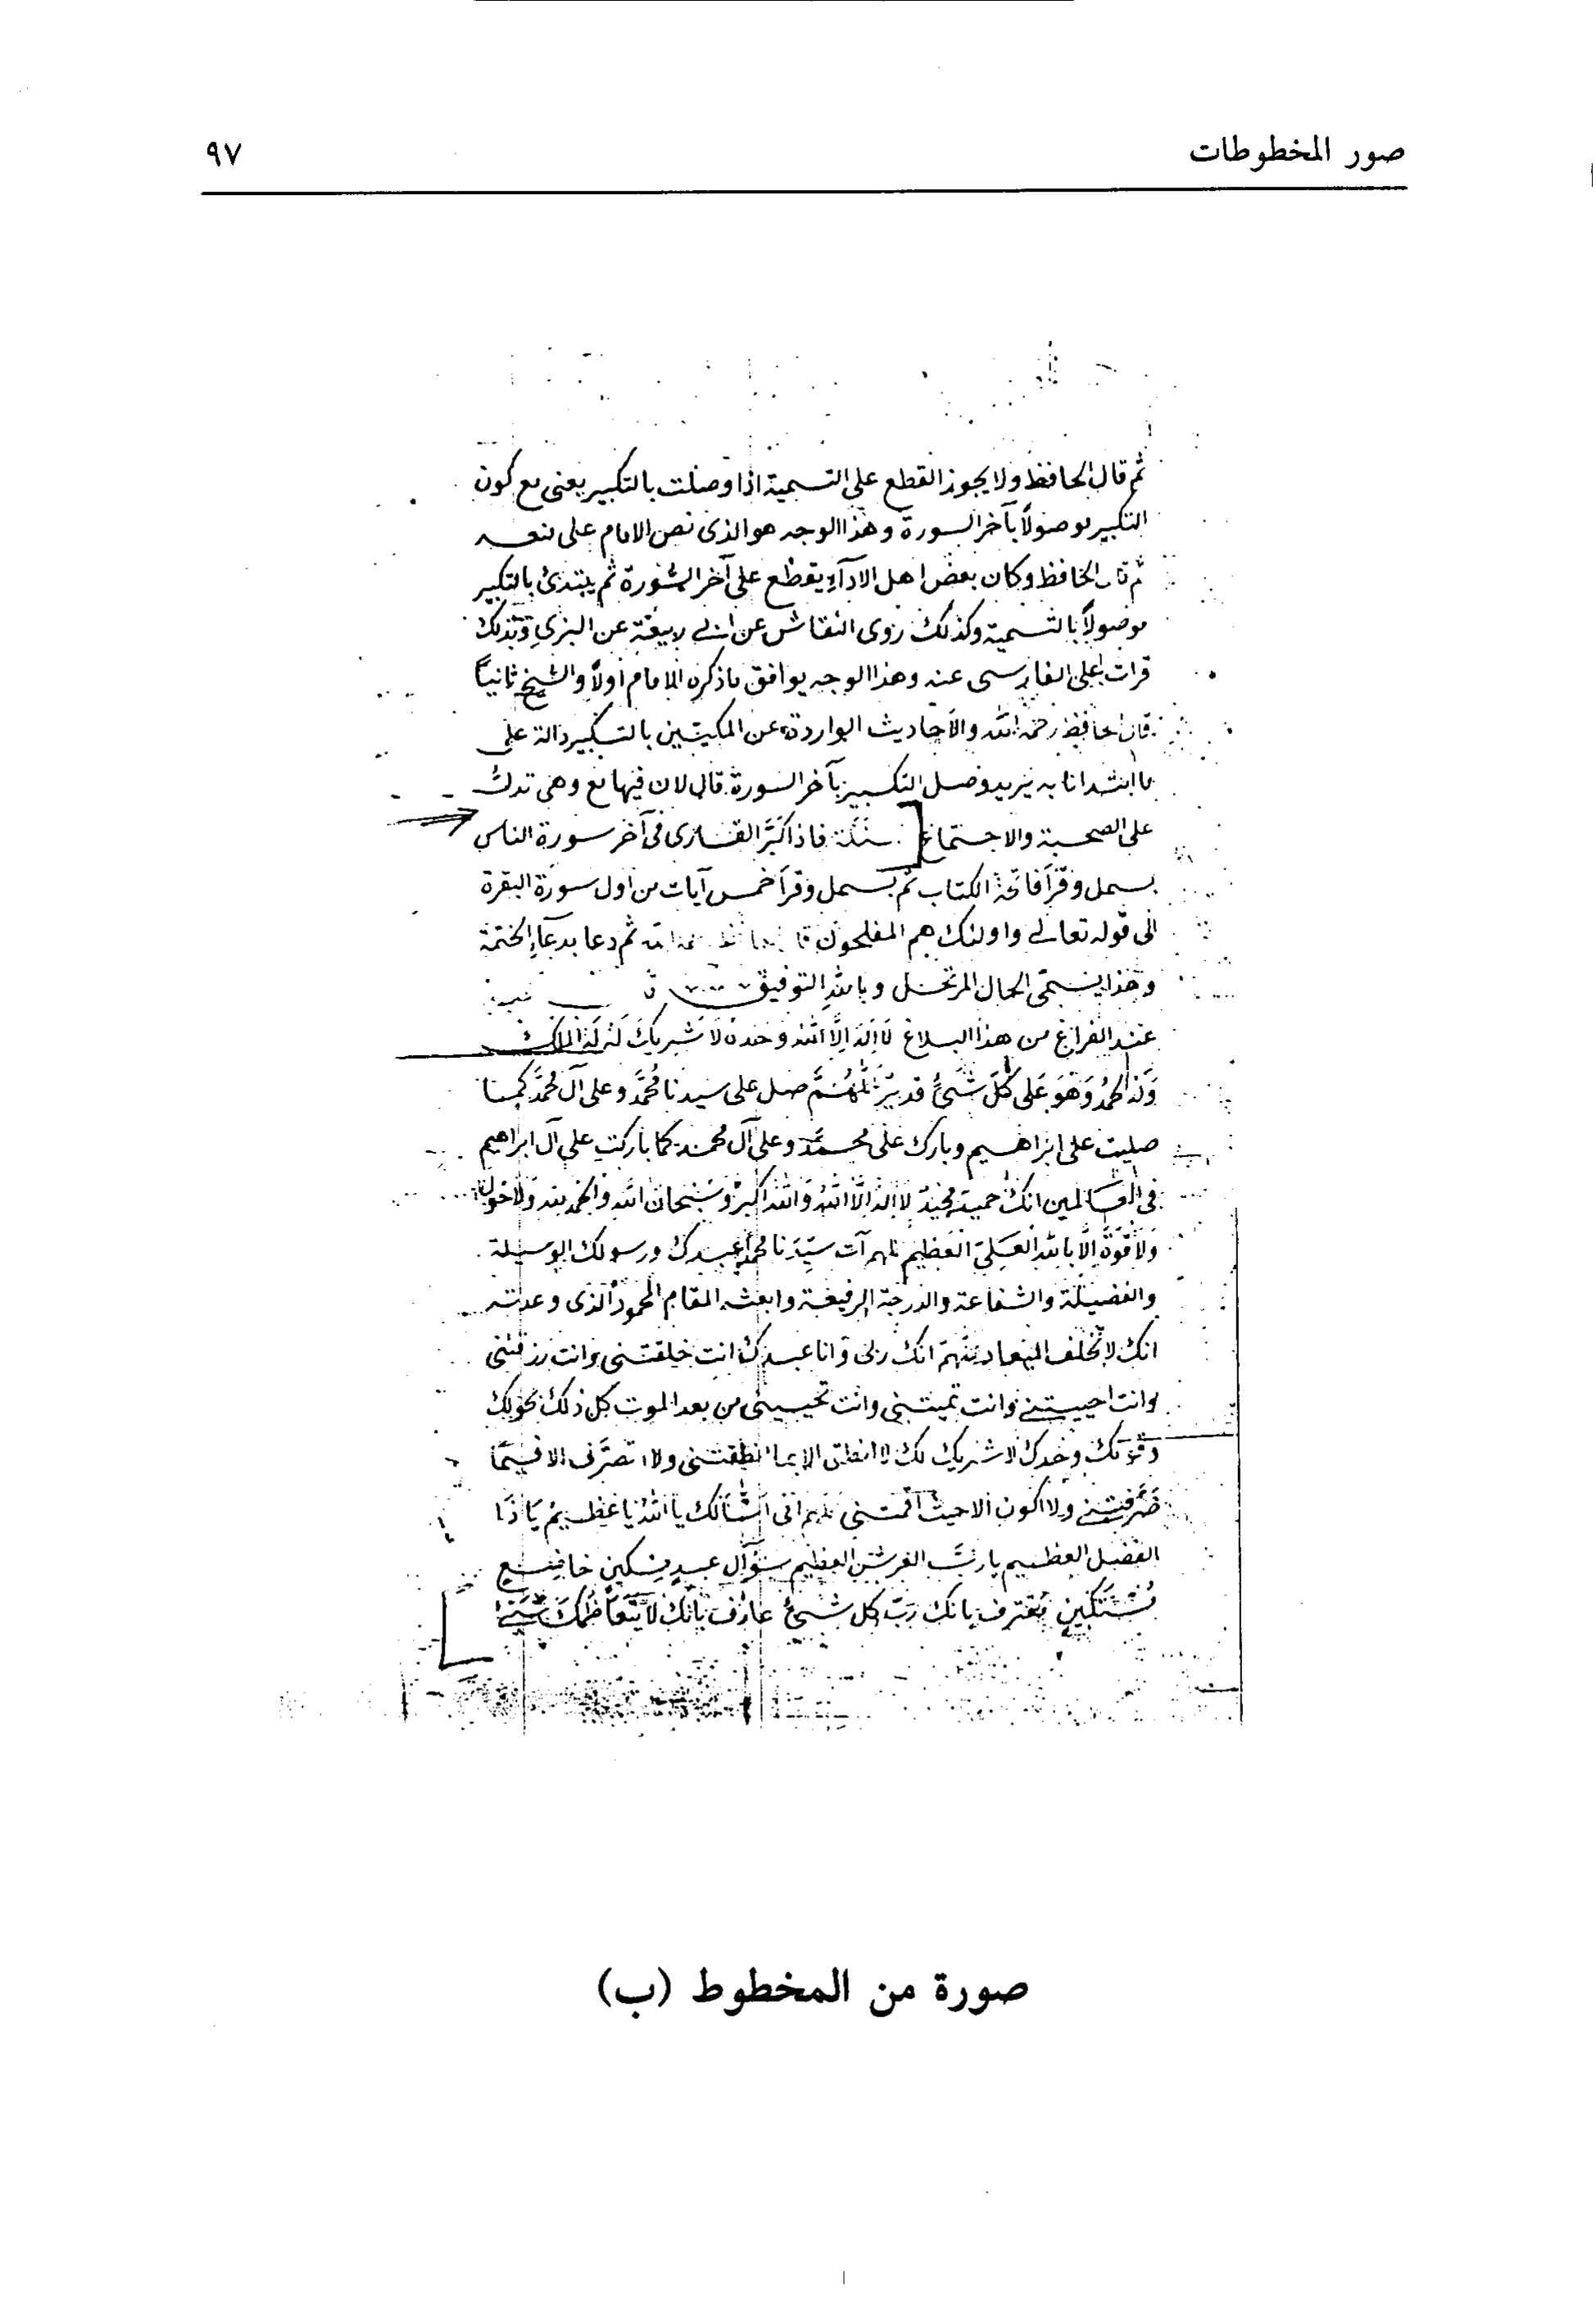 صور المخطوطات
٩٧
ثم قال الحافظ ولا يجوز القطع على التسمية اذا وصلت بالتكبير يعنى مع كون
التكبير موصولاً بآخر السورة وهذا الوجه هو الذى نص الامام على منعه
ثم قال الحافظ وكان بعض اهل الادآء يقطع على آخر السورة ثم يبتدئ بالتكبير
موصولاً بالتسمية وكذلك روى النقاش عن ابى ربيعة عن البزي وبذلك
قرات على الفارسى عنه وهذا الوجه يوافق ما ذكره الامام اولاً والشيخ ثانياً
قال الحافظ رحمه الله والأحاديث الواردة عن المكيين بالتكبير دالة على
ما ابتدانا به يريد وصل التكبير بآخر السورة قال لان فيها مع وهى تدل
على الصحبة والاجتماع فاذا كَبَّر القارى فى آخر سورة الناس
بسمل وقرأ فاتحة الكتاب ثم بسمل وقرأ خمس آيات من اول سورة البقرة
الى قوله تعالى واولئك هم المفلحون ثم دعا بدعآء الختمة
وهذا يسمى الحال المرتحل وبالله التوفيق
عند الفراغ من هذا البلاغ لا اله الا الله وحده لا شريك له له الملك
وله الحمد وهو على كل شئ قدير اللهم صل على سيدنا محمد وعلى آل محمد كما
صليت على ابراهيم وبارك على محمد وعلى آل محمد كما باركت على آل ابراهيم
فى العالمين انك حميد مجيد لا اله الا الله والله اكبر وسبحان الله والحمد لله ولا حول
ولا قوة الا بالله العلى العظيم اللهم آت سيدنا محمداً عبدك ورسولك الوسيلة
والفضيلة والشفاعة والدرجة الرفيعة وابعثه المقام المحمود الذى وعدته
انك لا تخلف الميعاد اللهم انك ربى وانا عبدك انت خلقتنى وانت رزقتنى
وانت احييتنى وانت تميتنى وانت تحيينى من بعد الموت كل ذلك بحولك
وقوتك وحدك لا شريك لك لا انطق الا بما انطقتنى ولا اتصرف الا فيما
صرفتنى ولا اكون الا حيث اقمتنى اللهم انى اسألك يا الله يا عظيم يا ذا
الفضل العظيم يا رب العرش العظيم سؤال عبد مسكين خاضع
مستكين معترف بانك رب كل شئ عارف بانك لا يتعاظمك شئ
صورة من المخطوط (ب)